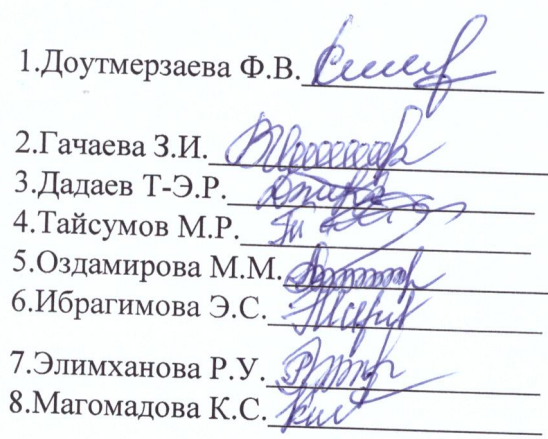 1.Доутмерзаева Ф.В.
2.Гачаева З.И.
3.Дадаев Т-Э.Р.
4.Тайсумов М.Р.
5.Оздамирова М.М.
6.Ибрагимова Э.С.
7.Элимханова Р.У.
8.Магомадова К.С.